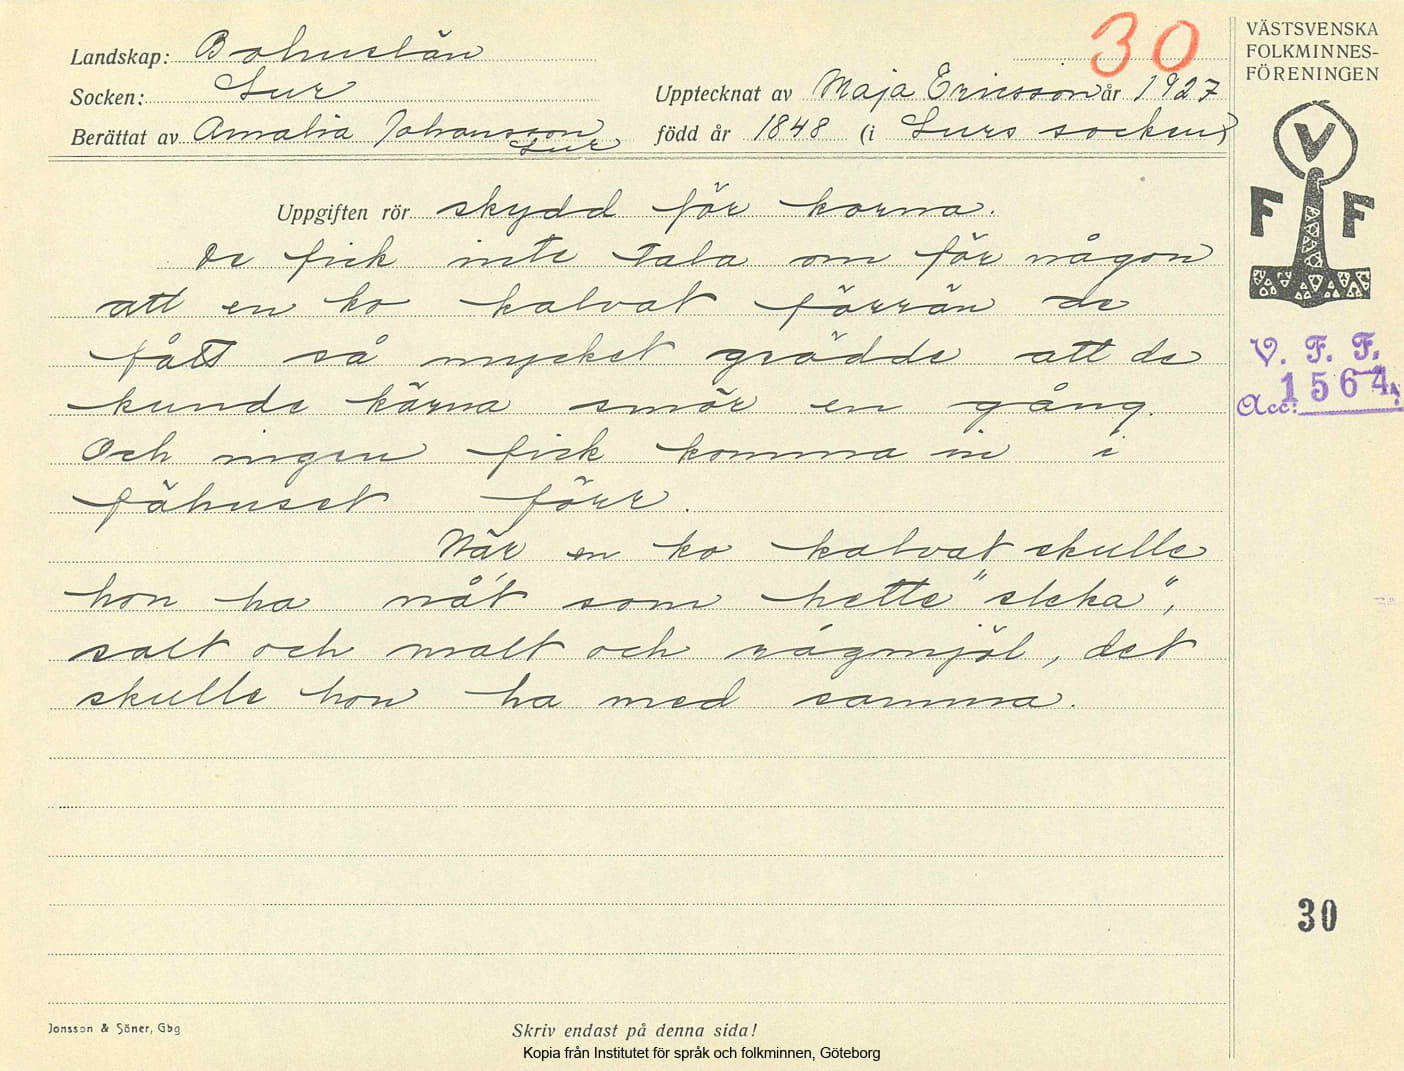 30
VÄSTSVENSKA
FOLKMINNES-
FÖRENINGEN
Landskap: Bohuslän
Socken: Lur
Upptecknat av Maja Ericsson år 1927
Berättat av Amalia Johansson Lur född år 1848 (i Lurs socken)
V
F F
Uppgiften rör skydd för korna.
De fick inte tala om för någon
att en ko kalvat förrän de
fått så mycket grädde att de
kunde kärna smör en gång.
Och ingen fick komma in i
fähuset förr.
När en ko kalvat skulle
hon ha nåt som hette "sleka",
salt och malt och rågmjöl, det
skulle hon ha med samma.
V. F. F.
Acc: 1564
30
Jonsson & Söner, Gbg
Skriv endast på denna sida!
Kopia från Institutet för språk och folkminnen, Göteborg